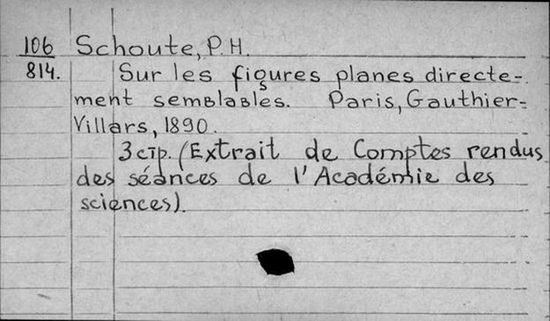 106 Schoute, P. H.
814. Sur les figures planes directe-
ment semblables. Paris, Gauthier-
Villars, 1890.
3 стр. (Extrait de Comptes rendus
des séances de l'Académie des
sciences).